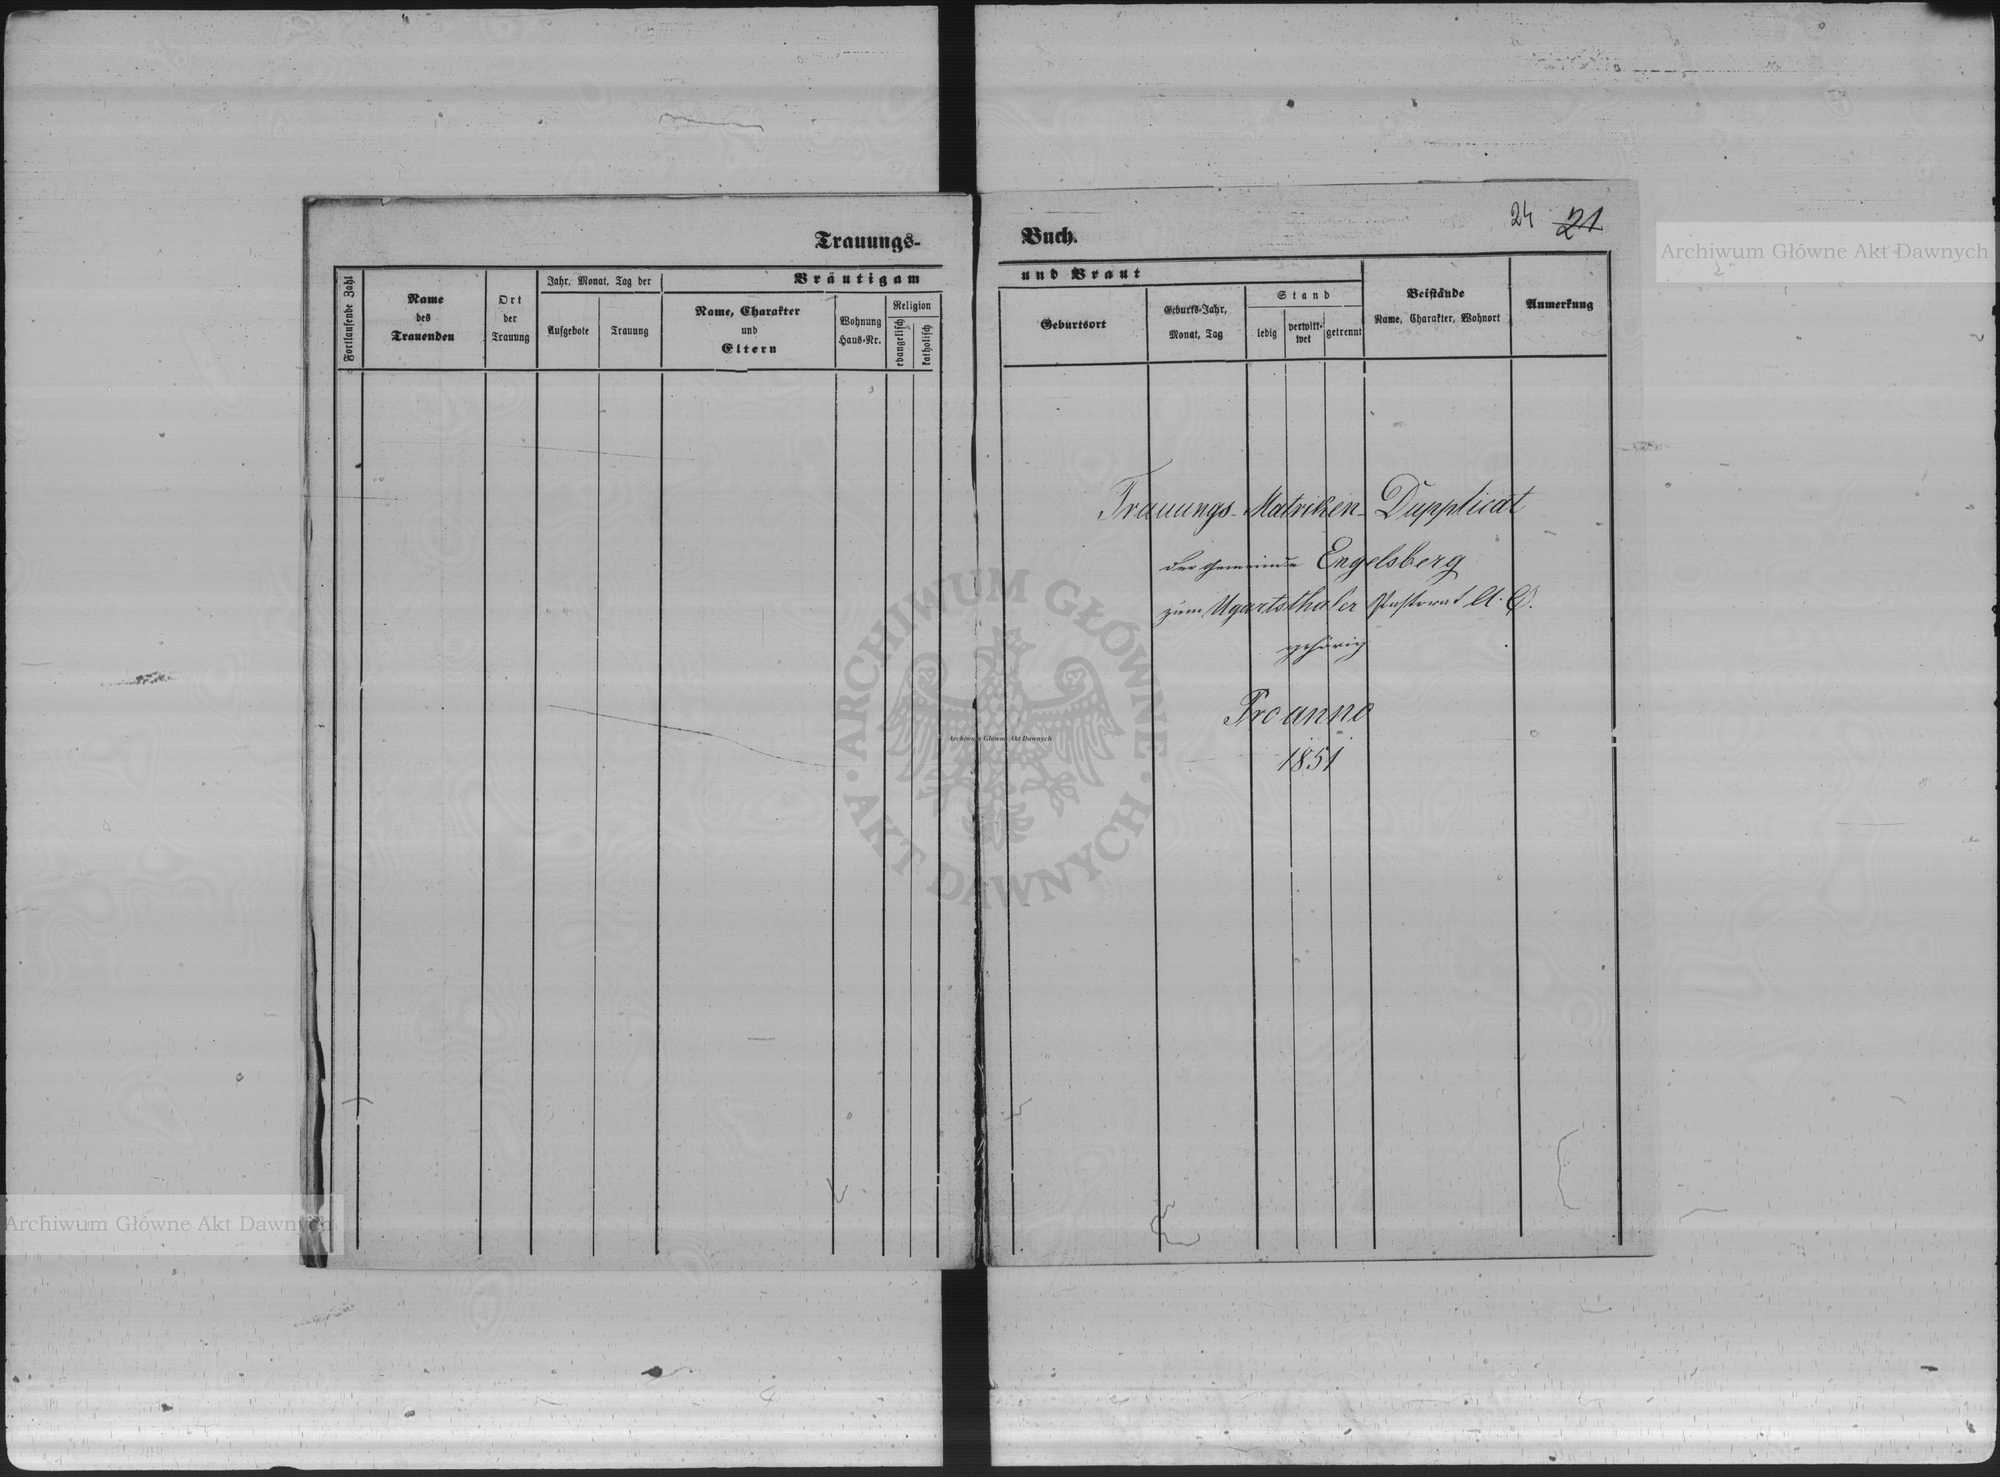 Trauungs-
Fortlaufende Zahl
Name
des
Trauenden
Ort
der
Trauung
Jahr, Monat, Tag der
Aufgebote
Trauung
Bräutigam
Name, Charakter
und
Eltern
Wohnung
Haus-Nr.
Religion
evangelisch
katholisch
Buch.
24 21
und Braut
Geburtsort
Geburts-Jahr,
Monat, Tag
Stand
ledig
verwitt-
wet
getrennt
Beistände
Name, Charakter, Wohnort
Anmerkung
Trauungs-Matriken-Dupplicat
der Gemeinde Engelsberg
zum Ugartsthaler Pastorat A. C.
gehörig
Pro anno
1851
Archiwum Główne Akt Dawnych
ARCHIWUM GŁÓWNE
AKT DAWNYCH
Archiwum Główne Akt Dawnych
Archiwum Główne Akt Dawnych